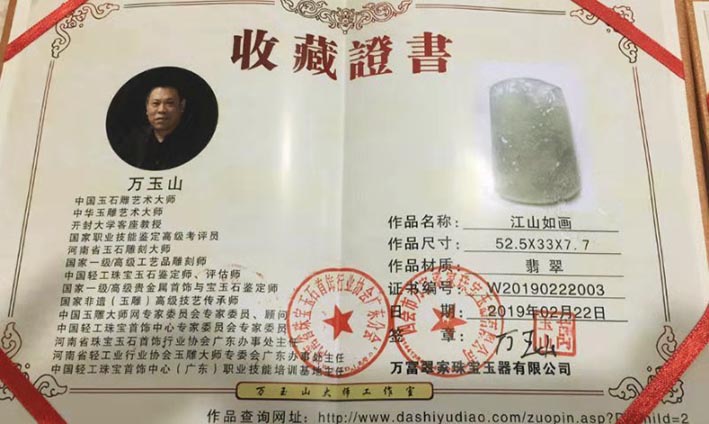 收藏證書
万玉山
中国玉石雕艺术大师
中华玉雕艺术大师
开封大学客座教授
国家职业技能鉴定高级考评员
河南省玉石雕刻大师
国家一级/高级工艺品雕刻师
中国轻工珠宝玉石鉴定师、评估师
国家一级/高级贵金属首饰与宝玉石鉴定师
国家非遗（玉雕）高级技艺传承师
中国玉雕大师网专家委员会专家委员、顾问
中国轻工珠宝首饰中心专家委员会专家委员
河南省珠宝玉石首饰行业协会广东办事处主任
河南省轻工业行业协会玉雕大师专委会广东办事处主任
中国轻工珠宝首饰中心（广东）职业技能培训基地主任
作品名称：江山如画
作品尺寸：52.5X33X7.7
作品材质：翡翠
证书编号：W20190222003
日期：2019年02月22日
签章：万玉山
万富翠家珠宝玉器有限公司
万玉山大师工作室
作品查询网址：http://www.dashiyudiao.com/zuopin.asp?